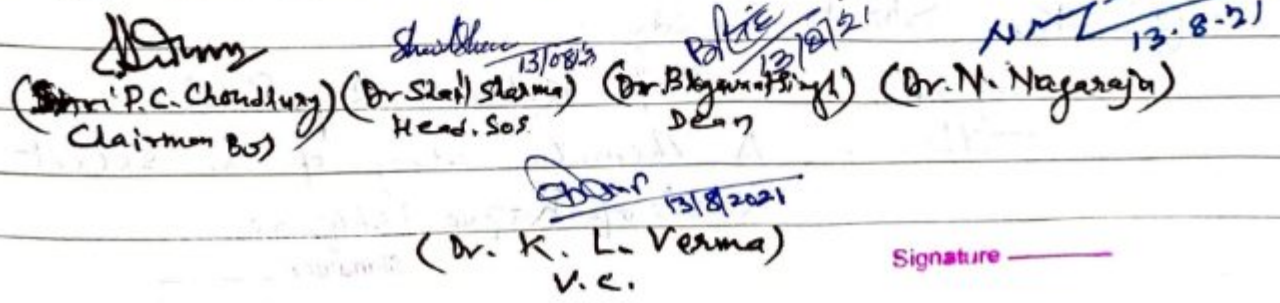 13/08/21 13/8/21 13.8.21
(Shri P.C. Choudhury) (Dr Shail Sharma) (Dr. Bhgawant Singh) (Dr. N. Nagaraja)
Chairman BOS Head. SOS Dean
13/8/2021
(Dr. K. L. Verma)
V.C.
Signature